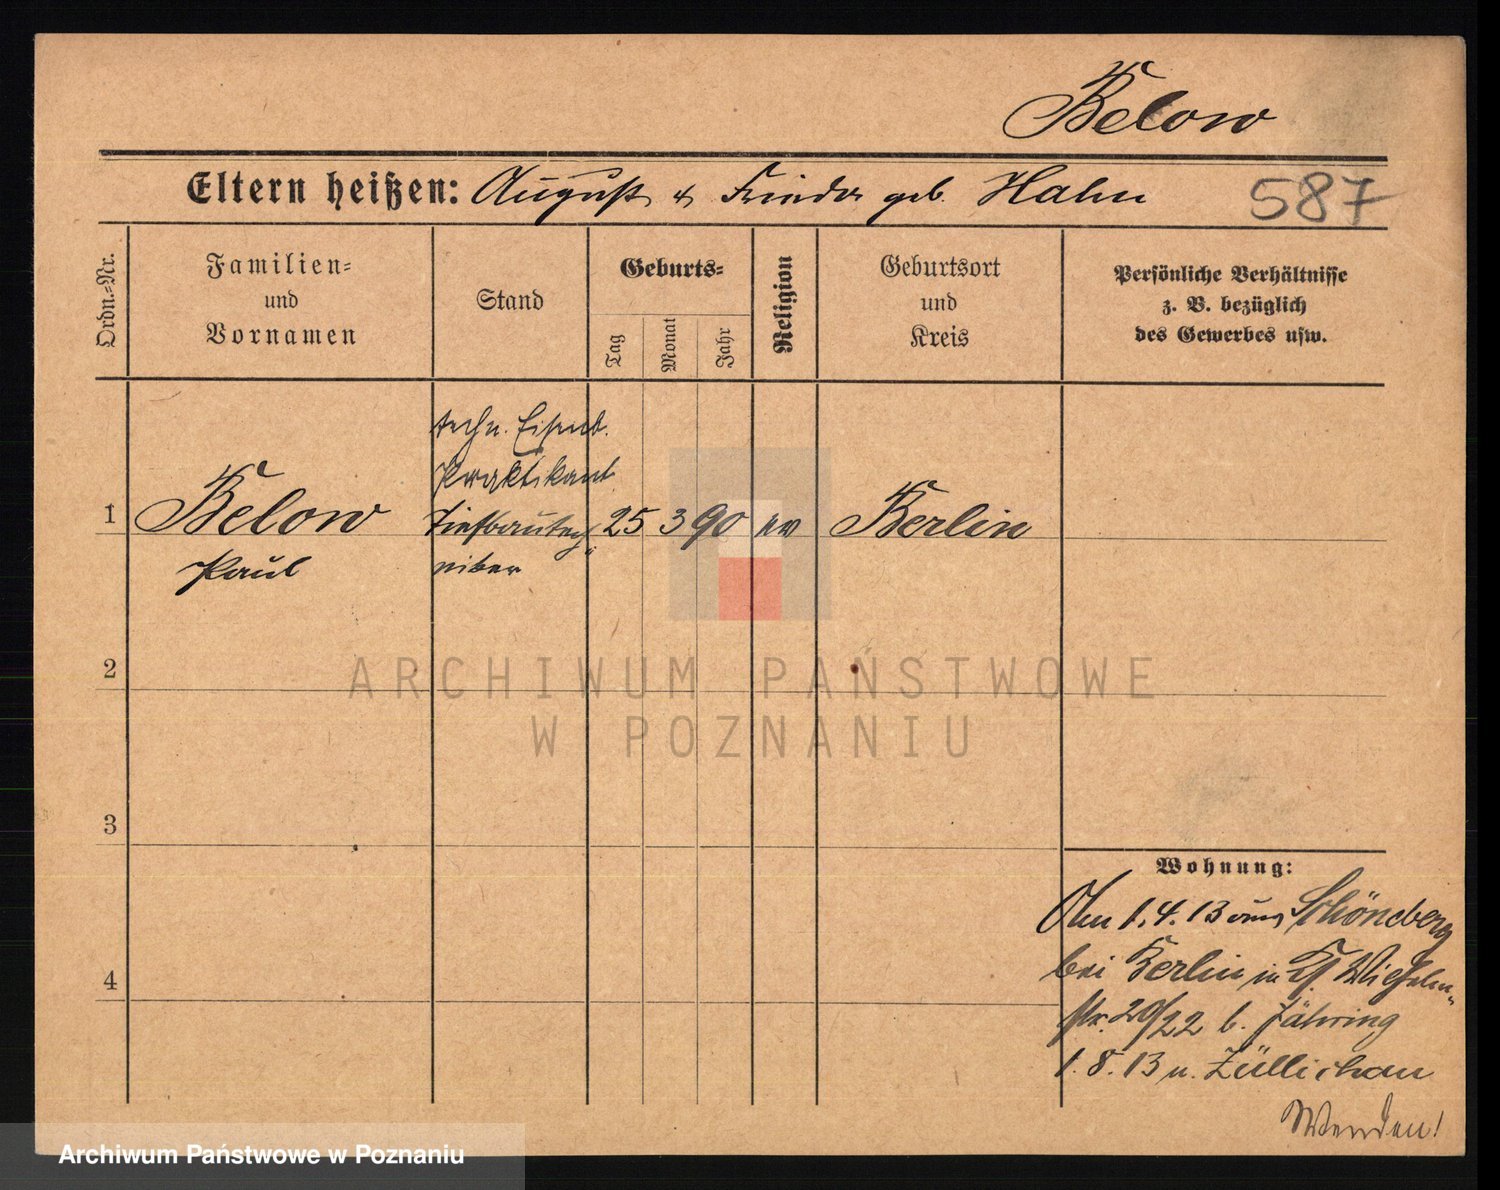 Below
Eltern heißen: August & Frieder geb. Hahn 587
Ordn.-Nr.
Familien-
und
Vornamen
Stand
Geburts-
Tag
Monat
Jahr
Religion
Geburtsort
und
Kreis
Persönliche Verhältnisse
z. B. bezüglich
des Gewerbes usw.
techn. Eisenb.
Praktikant
1 Below Tiefbautech- 25 3 90 ev Berlin
Paul niker
2
3
4
Wohnung:
1.4.13 aus Schöneberg
bei Berlin in
str. 20/22 b. Jähring
1.8.13 n. Züllichau
Wenden!
ARCHIWUM PAŃSTWOWE
W POZNANIU
Archiwum Państwowe w Poznaniu